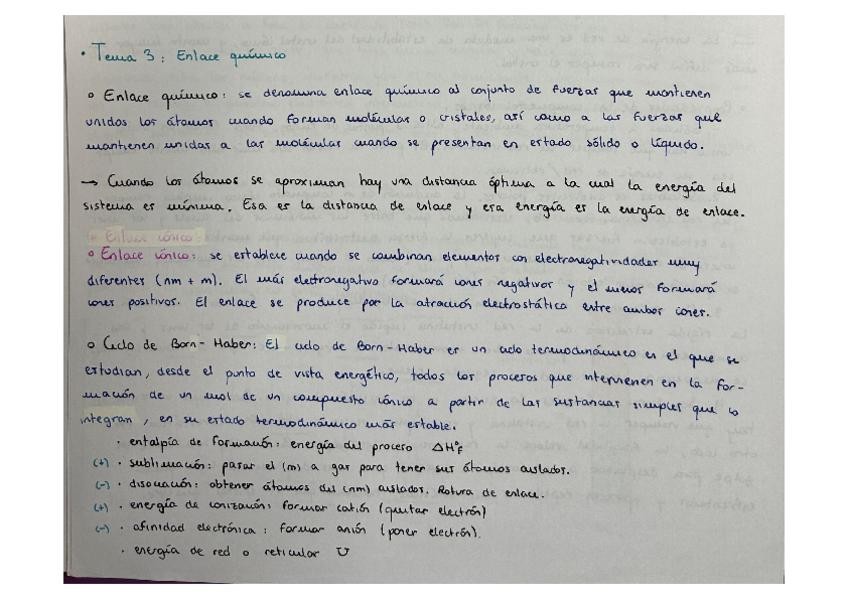 • Tema 3: Enlace químico
o Enlace químico: se denomina enlace químico al conjunto de fuerzas que mantienen
unidos los átomos cuando forman moléculas o cristales, así como a las fuerzas que
mantienen unidas a las moléculas cuando se presentan en estado sólido o líquido.
→ Cuando los átomos se aproximan hay una distancia óptima a la cual la energía del
sistema es mínima. Esa es la distancia de enlace y esa energía es la energía de enlace.
• Enlace iónico:
o Enlace iónico: se establece cuando se combinan elementos con electronegatividades muy
diferentes (nm + m). El más electronegativo formará iones negativos y el menos formará
iones positivos. El enlace se produce por la atracción electrostática entre ambos iones.
o Ciclo de Born-Haber: El ciclo de Born-Haber es un ciclo termodinámico en el que se
estudian, desde el punto de vista energético, todos los procesos que intervienen en la for-
mación de un mol de un compuesto iónico a partir de las sustancias simples que lo
integran, en su estado termodinámico más estable.
· entalpía de formación: energía del proceso ΔH°f
(+) · sublimación: pasar el (m) a gas para tener sus átomos aislados.
(-) · disociación: obtener átomos del (nm) aislados. Rotura de enlace.
(+) · energía de ionización: formar catión (quitar electrón)
(-) · afinidad electrónica: formar anión (poner electrón).
· energía de red o reticular U